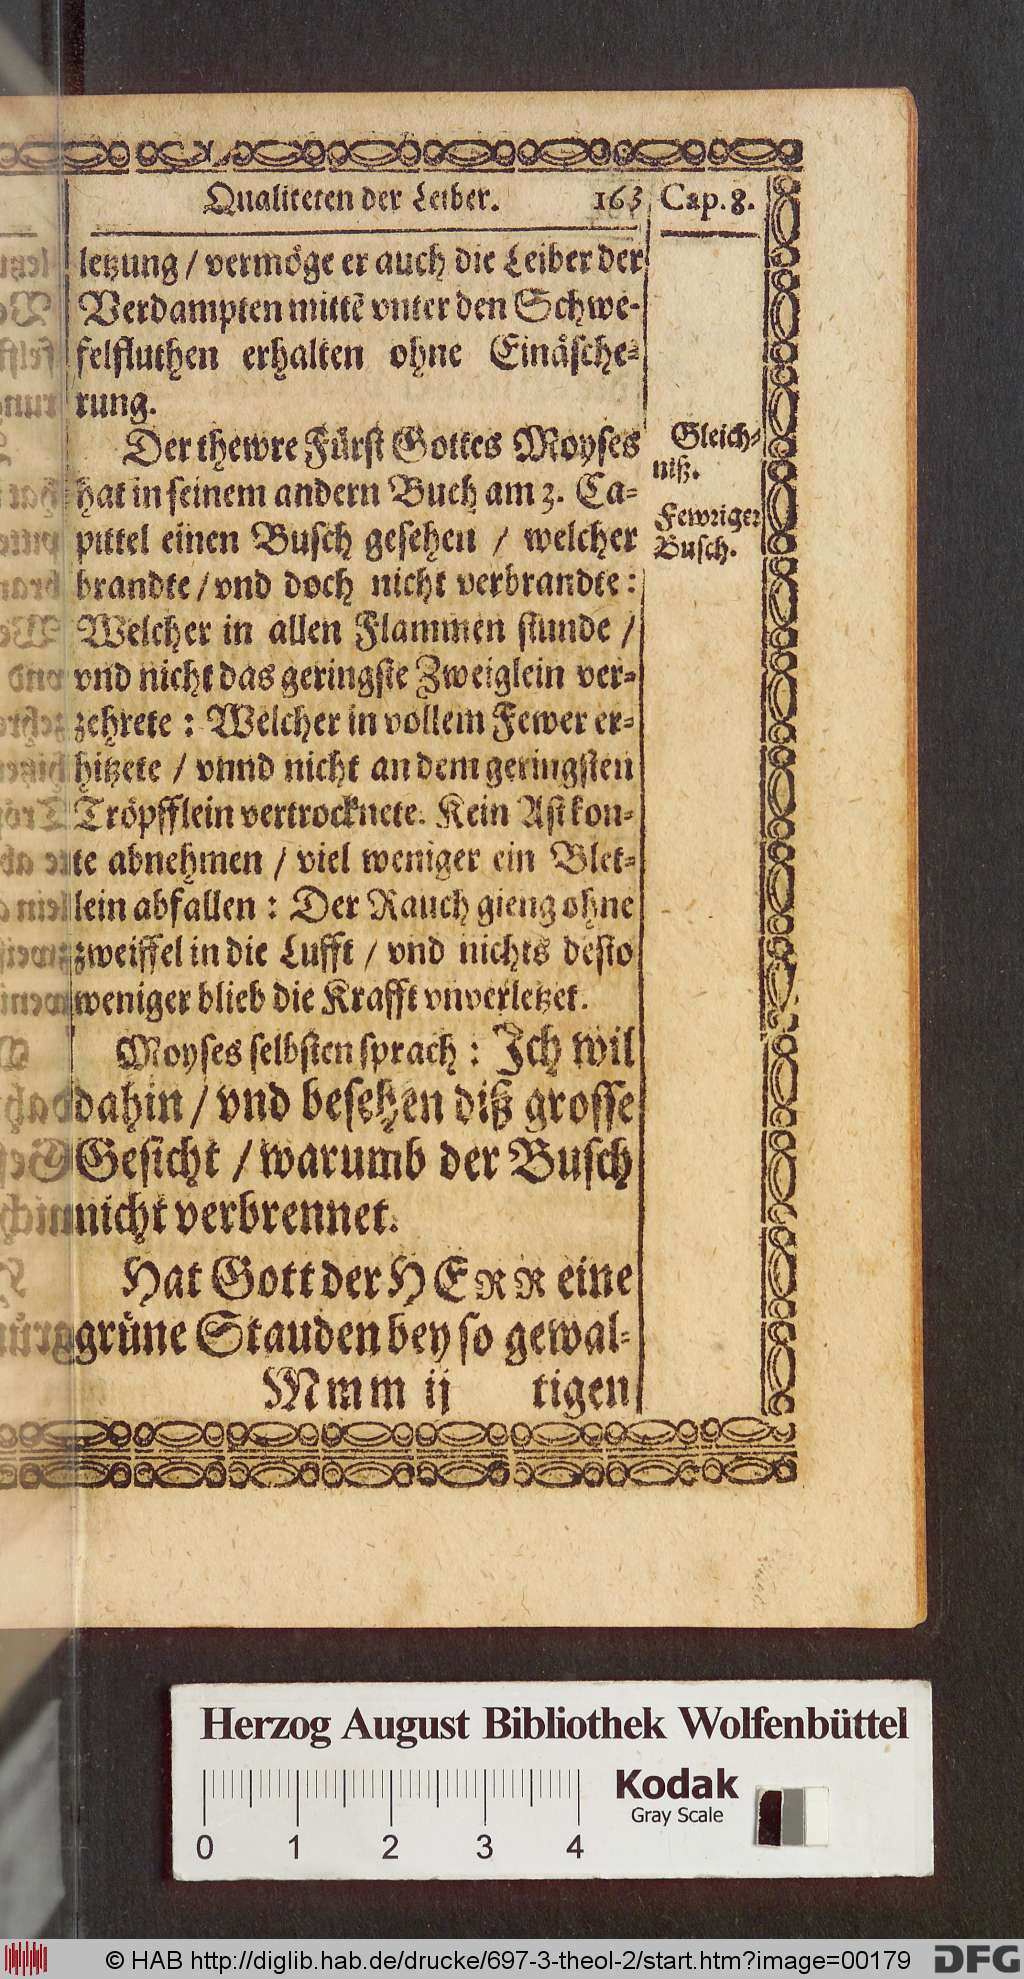 Qualiteten der Leiber. 163 Cap. 8.
letzung / vermöge er auch die Leiber der
Verdampten mittē vnter den Schwe-
felfluthen erhalten ohne Einäsche-
rung.
Der thewre Fürst Gottes Moyses
hat in seinem andern Buch am 3. Ca-
pittel einen Busch gesehen / welcher
brandte / vnd doch nicht verbrandte:
Welcher in allen Flammen stunde /
vnd nicht das geringste Zweiglein ver-
zehrete : Welcher in vollem Fewer er-
hitzete / vnnd nicht an dem geringsten
Tröpfflein vertrocknete. Kein Ast kon-
te abnehmen / viel weniger ein Blet-
lein abfallen : Der Rauch gieng ohne
zweiffel in die Lufft / vnd nichts desto
weniger blieb die Krafft vnverletzet.
Moyses selbsten sprach : Ich wil
dahin / vnd besehen diß grosse
Gesicht / warumb der Busch
nicht verbrennet.
Hat Gott der HERR eine
grüne Stauden bey so gewal-
Mmm ij tigen
Gleich-
niß.
Fewriger
Busch.
Herzog August Bibliothek Wolfenbüttel
Kodak
Gray Scale
0 1 2 3 4
© HAB http://diglib.hab.de/drucke/697-3-theol-2/start.htm?image=00179 DFG